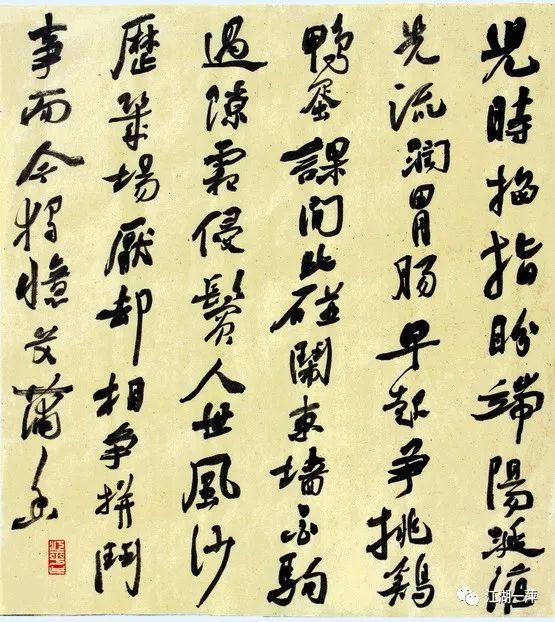 兒時掐指盼端陽涎液
先流潤胃腸早起爭挑鷄
鴨蛋課間比碰鬧東墻白駒
過隙霜侵鬢人世風沙
歷幾場厭却相爭拼鬥
事而今獨憶艾蒲香
江湖一萍